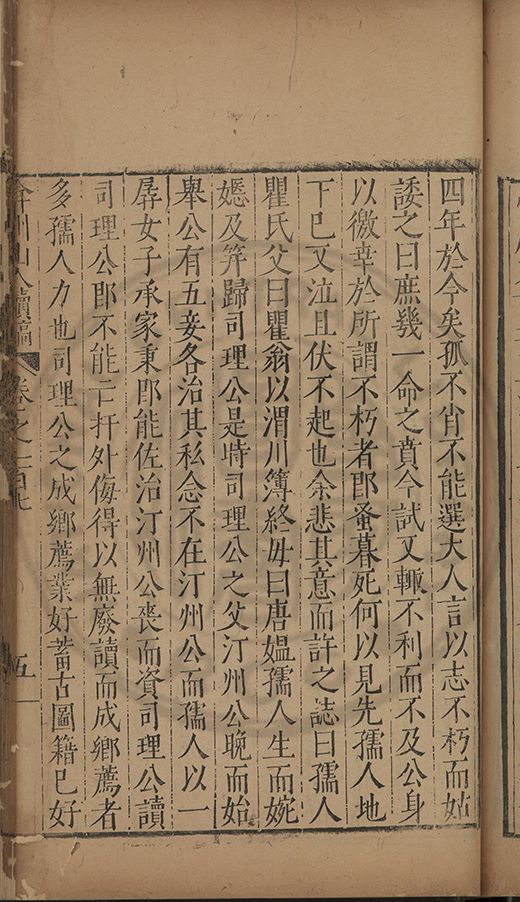 四年於今矣孤不肖不能選大人言以志不朽而姑
諉之曰庶幾一命之賁今試又輙不利而不及公身
以徼幸於所謂不朽者即蚤暮死何以見先孺人地
下已又泣且伏不起也余悲其意而許之誌曰孺人
瞿氏父曰瞿翁以渭川簿終毋曰唐媪孺人生而婉
嫕及筓歸司理公是時司理公之父汀州公晚而始
舉公有五妾各治其私念不在汀州公而孺人以一
孱女子承家秉即能佐治汀州公喪而資司理公讀
司理公即不能亡扞外侮得以無廢讀而成鄉薦者
多孺人力也司理公之成鄉薦業好蓄古圖籍已好
弇州山人續稿 卷之一百 五